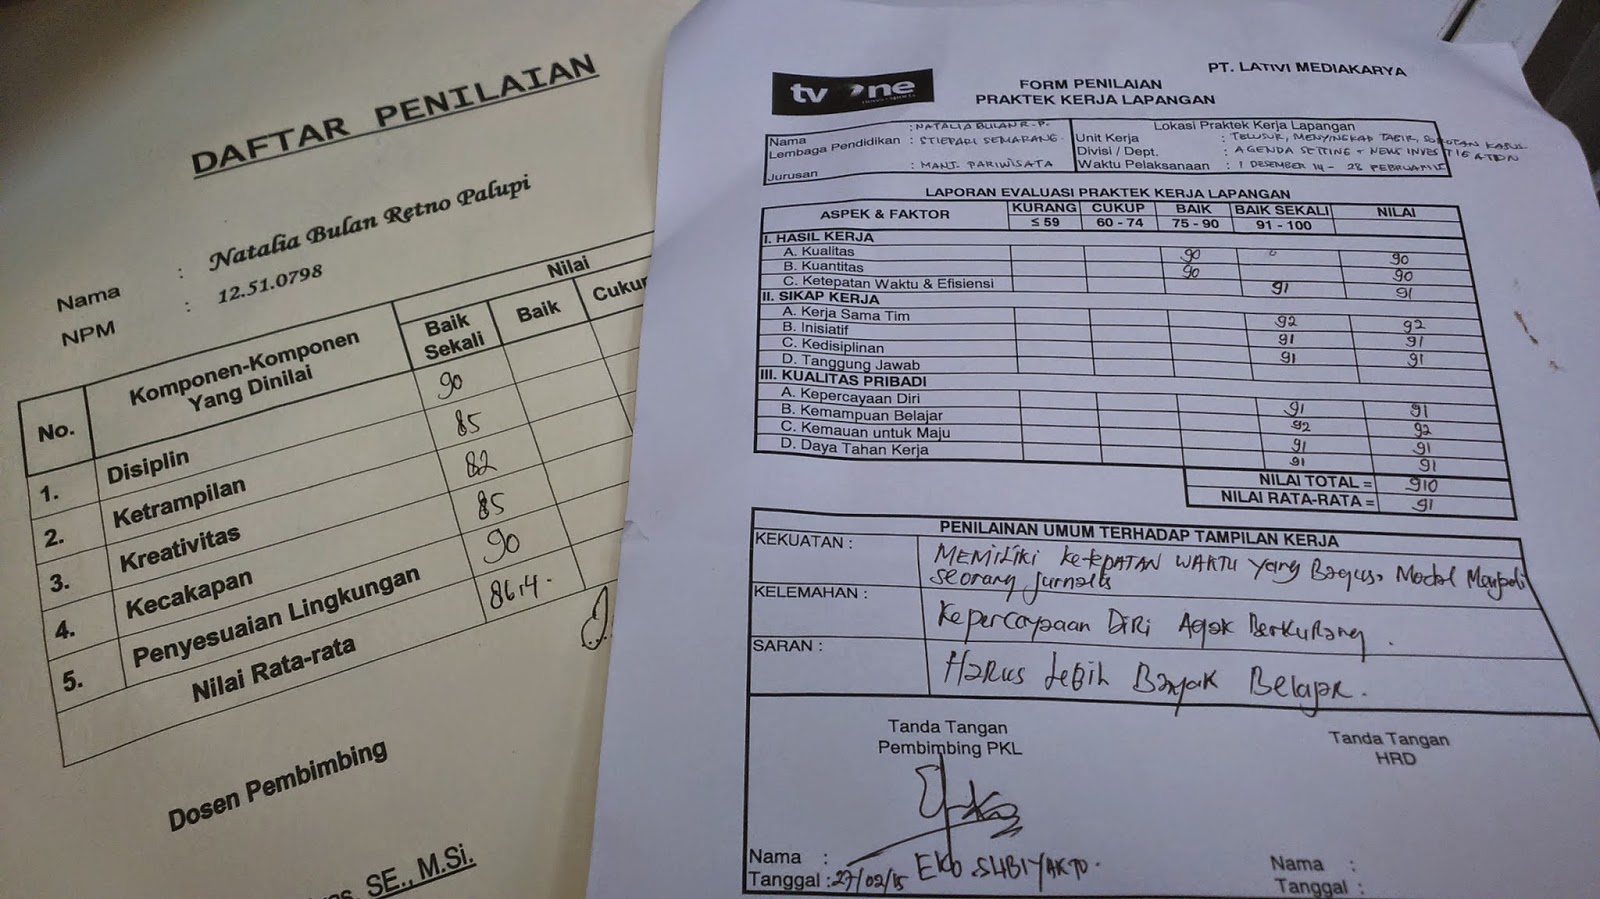 DAFTAR PENILAIAN
Nama : Natalia Bulan Retno Palupi
NPM : 12.51.0798
No. Komponen-Komponen Yang Dinilai Nilai
Baik Sekali Baik Cukup
1. Disiplin 90
2. Ketrampilan 85
3. Kreativitas 82
4. Kecakapan 85
5. Penyesuaian Lingkungan 90
Nilai Rata-rata 86,4.
Dosen Pembimbing
SE., M.Si.
tv one
PT. LATIVI MEDIAKARYA
FORM PENILAIAN
PRAKTEK KERJA LAPANGAN
Nama : NATALIA BULAN R.P.
Lembaga Pendidikan : STIEPARI SEMARANG
Jurusan : MANJ. PARIWISATA
Lokasi Praktek Kerja Lapangan
Unit Kerja : TELUSUR, MENYINGKAP TABIR, SOROTAN KASUS
Divisi / Dept. : AGENDA SETTING + NEWS INVESTIGATION
Waktu Pelaksanaan : 1 DESEMBER 14 - 28 FEBRUARI 15
LAPORAN EVALUASI PRAKTEK KERJA LAPANGAN
ASPEK & FAKTOR KURANG CUKUP BAIK BAIK SEKALI NILAI
≤ 59 60 - 74 75 - 90 91 - 100
I. HASIL KERJA
A. Kualitas 90 90
B. Kuantitas 90 90
C. Ketepatan Waktu & Efisiensi 91 91
II. SIKAP KERJA
A. Kerja Sama Tim 92 92
B. Inisiatif 91 91
C. Kedisiplinan 91 91
D. Tanggung Jawab
III. KUALITAS PRIBADI
A. Kepercayaan Diri 91 91
B. Kemampuan Belajar 92 92
C. Kemauan untuk Maju 91 91
D. Daya Tahan Kerja 91 91
NILAI TOTAL = 910
NILAI RATA-RATA = 91
PENILAINAN UMUM TERHADAP TAMPILAN KERJA
KEKUATAN : MEMILIKI KETEPATAN WAKTU yang Bagus, Modal Menjadi
seorang jurnalis
KELEMAHAN : Kepercayaan DIRI Agak Berkurang.
SARAN : Harus Lebih Banyak Belajar.
Tanda Tangan
Pembimbing PKL
Tanda Tangan
HRD
Nama : EKO SUBIYAKTO.
Tanggal : 27/02/15
Nama :
Tanggal :